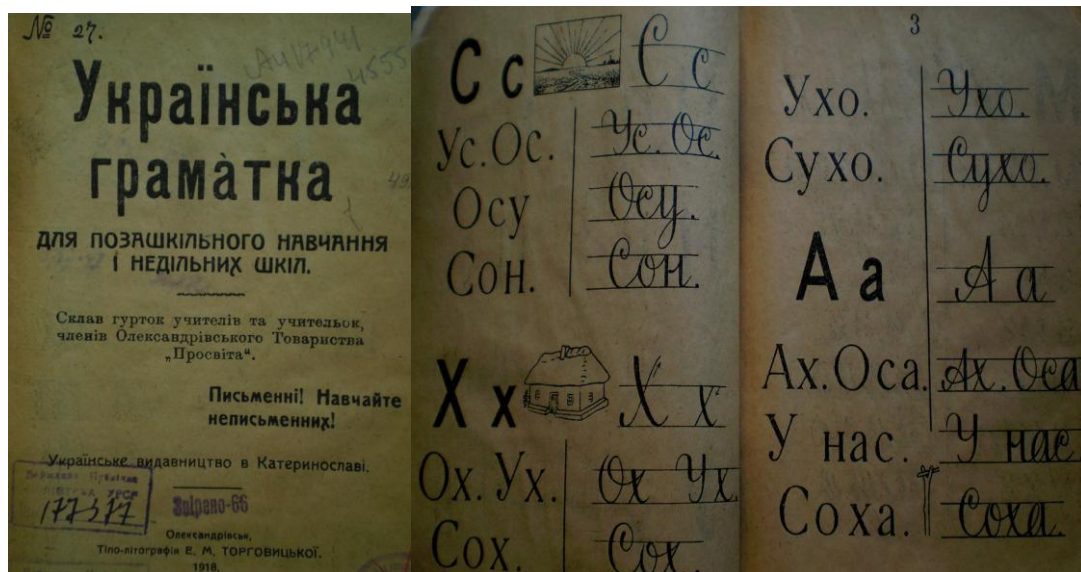 № 27.
Українська
грама̀тка
ДЛЯ ПОЗАШКІЛЬНОГО НАВЧАННЯ
І НЕДІЛЬНИХ ШКІЛ.
Склав гурток учителів та учительок,
членів Олександрівського Товариства
„Просвіта“.
Письменні! Навчайте
неписьменних!
Українське видавництво в Катеринославі.
177377
Звірано-66
Олександрівськ,
Тіпо-літографія Е. М. ТОРГОВИЦЬКОЇ.
1918.
С с С с
Ус. Ос. Ус. Ос.
Осу Осу.
Сон. Сон.
Х х Х х
Ох. Ух. Ох Ух.
Сох. Сох.
3
Ухо. Ухо.
Сухо. Сухо.
А а А а
Ах. Оса. Ах. Оса
У нас. У нас
Соха. Соха.